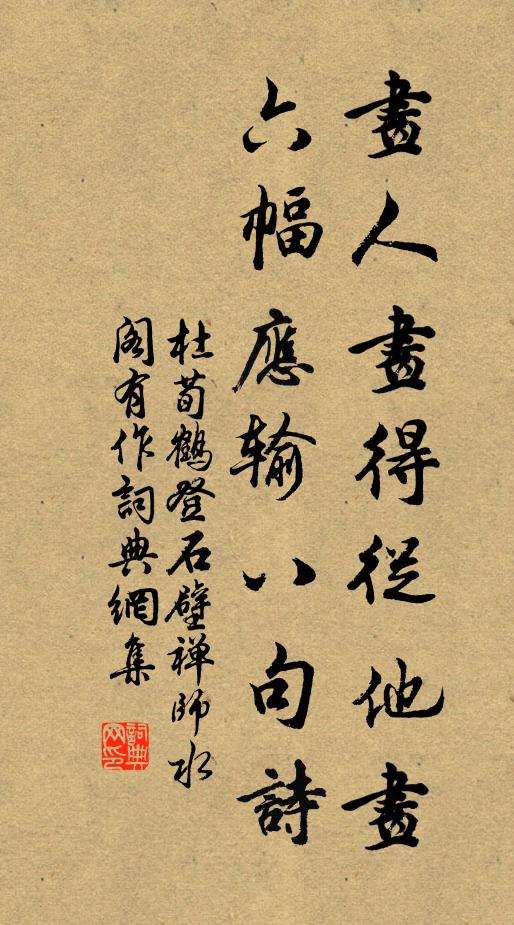 畫人畫得從他畫
六幅應輸八句詩
杜荀鶴登石壁禅師水
阁有作詞典網集
詞典
网印